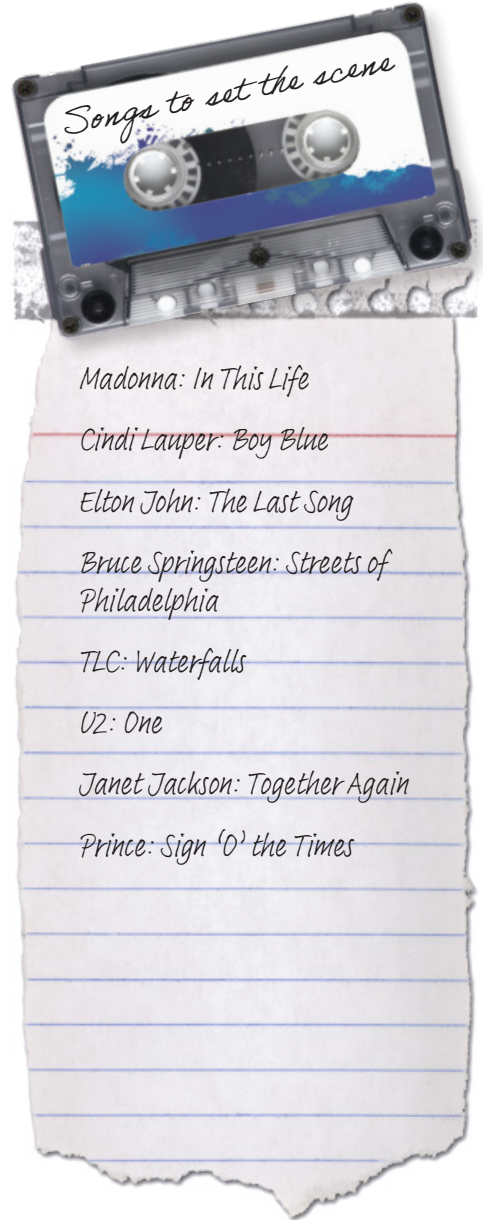 Songs to set the scene
Madonna: In This Life
Cindi Lauper: Boy Blue
Elton John: The Last Song
Bruce Springsteen: Streets of
Philadelphia
TLC: Waterfalls
U2: One
Janet Jackson: Together Again
Prince: Sign ‘O’ the Times